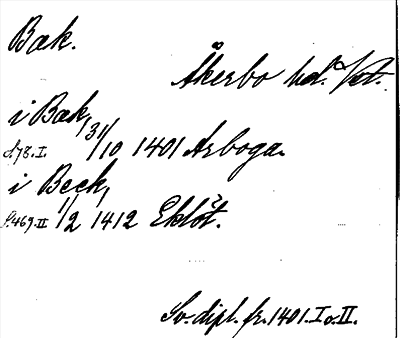 Bæk.
Åkerbo hd. Vstm.
i Bæk, 31/10 1401 Arboga.
S. 78. I.
i Beck, 1/2 1412 Eklöt.
S. 469. II
Sv. dipl. fr. 1401. I o. II.